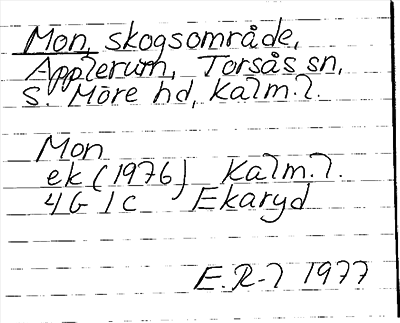 Mon, skogsområde,
Applerum, Torsås sn,
S. Möre hd, Kalm. l.
Mon
ek (1976) Kalm. l.
4G 1c Ekaryd
E.R-l 1977